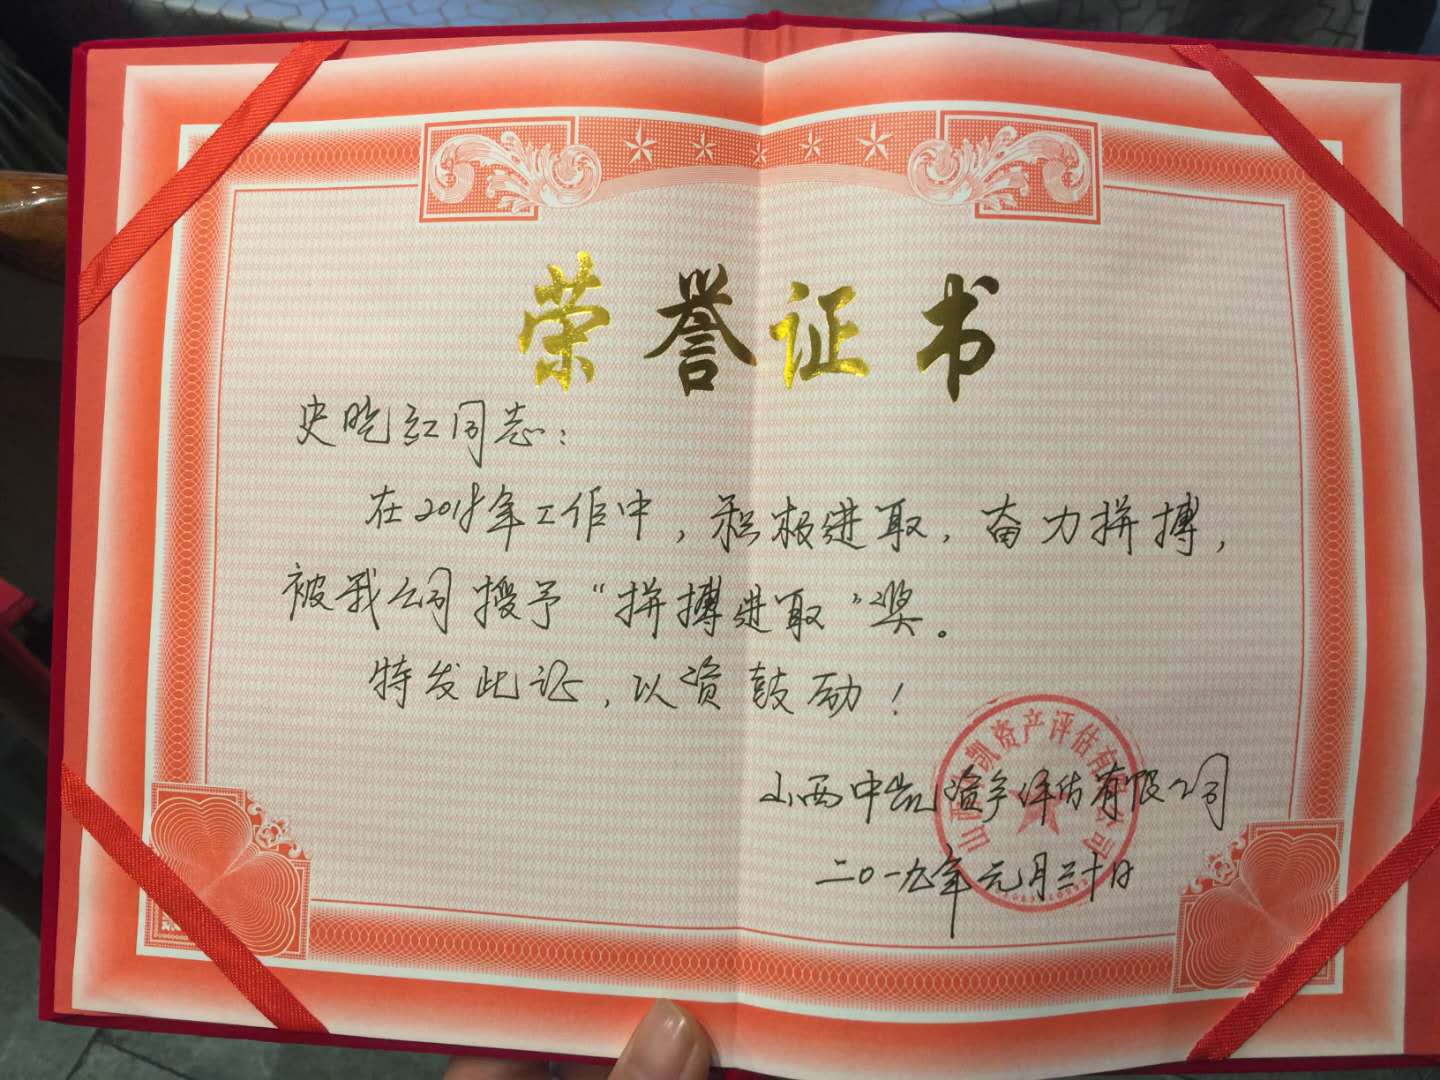 荣誉证书
史晓红同志：
在2018年工作中，积极进取，奋力拼搏，
被我公司授予“拼搏进取”奖。
特发此证，以资鼓励！
山西中凯资产评估有限公司
二〇一九年元月三十日
山西中凯资产评估有限公司